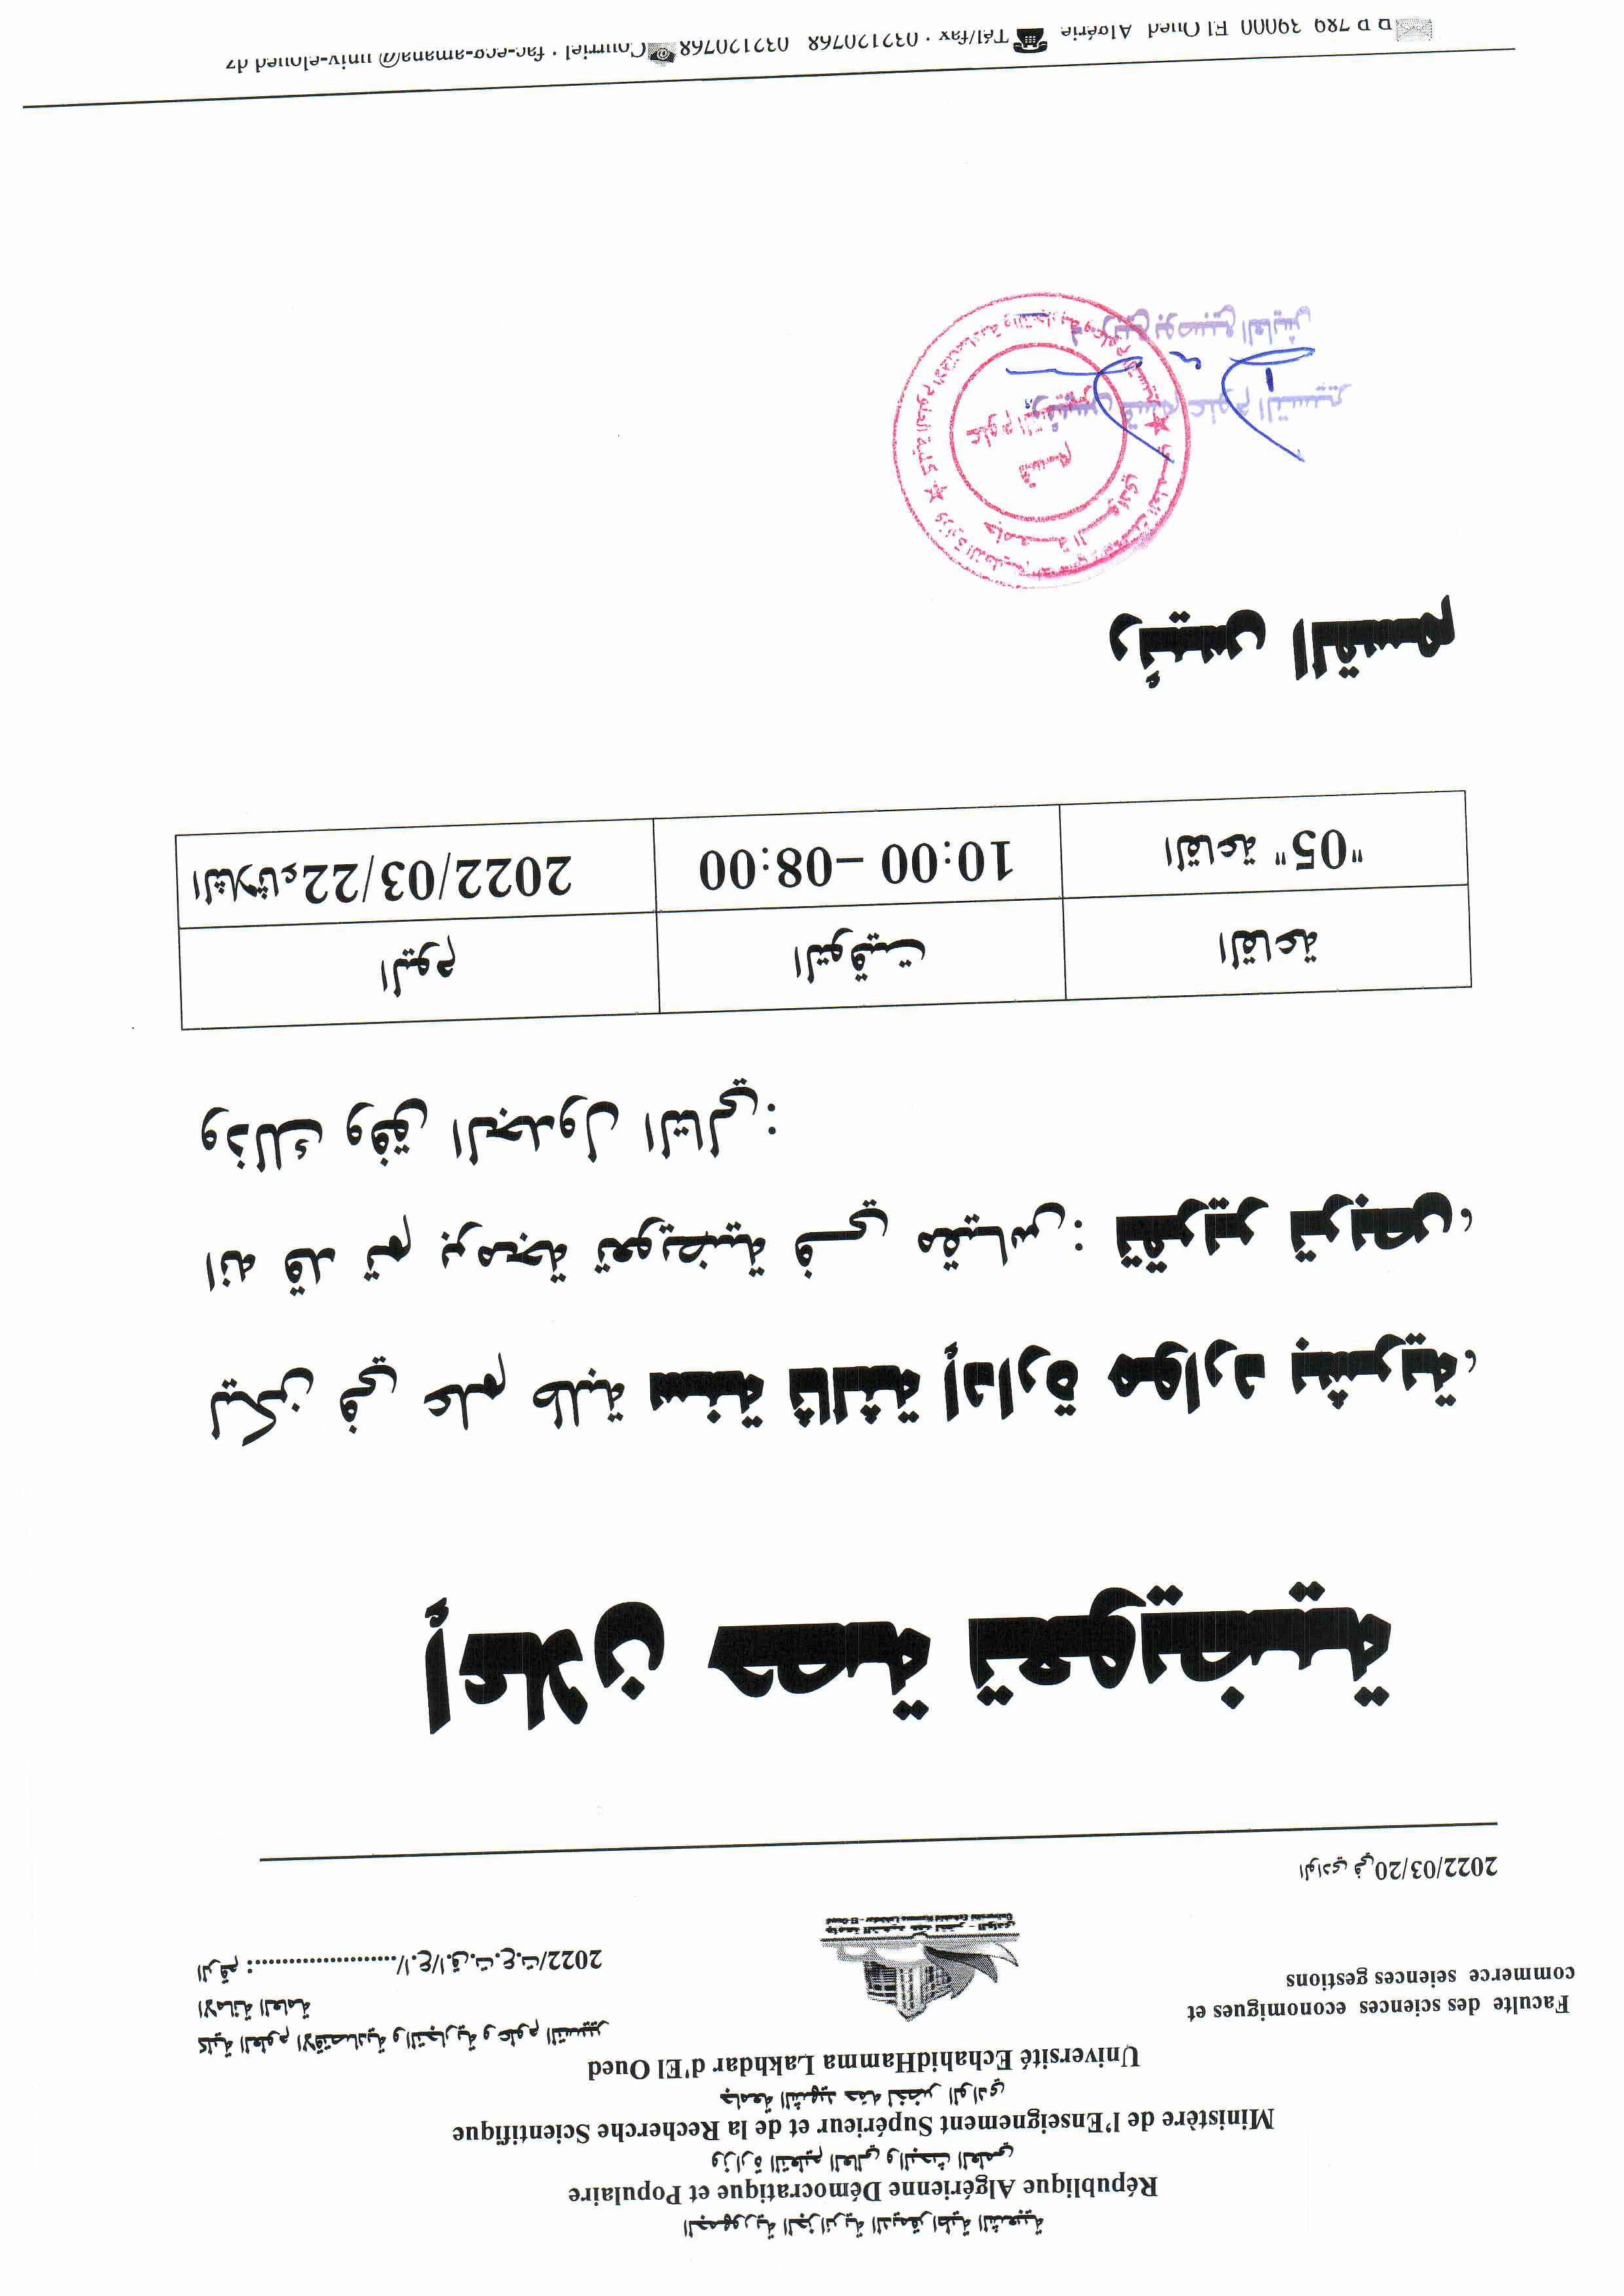 الجمهورية الجزائرية الديمقراطية الشعبية
République Algérienne Démocratique et Populaire
وزارة التعليم العالي والبحث العلمي
Ministère de l'Enseignement Supérieur et de la Recherche Scientifique
جامعة الشهيد حمه لخضر الوادي
Université EchahidHamma Lakhdar d'El Oued
كلية العلوم الاقتصادية والتجارية و علوم التسيير
الامانة العامة
الرقم :........................../ا.ع/ا.ق.ت.ع.ت/2022
Faculte des sciences economigues et
commerce seiences gestions
الوادي في 2022/03/20
إعلان حصة تعويضية
ليكن في علم طلبة سنة ثالثة إدارة موارد بشرية،
انه قد تم برمجة تعويضية في مقياس: تقرير تربص،
وذلك وفق الجدول التالي:
اليوم التوقيت القاعة
الثلاثاء 2022/03/22 10:00 –08:00 القاعة "05"
رئيس القسم
قسم
علوم التسيير
رئيس قسم علوم التسيير
B.P 789 39000 El Oued Algérie Tél/fax : 032120768 032120768 Courriel : fac-eco-amana@univ-eloued.dz